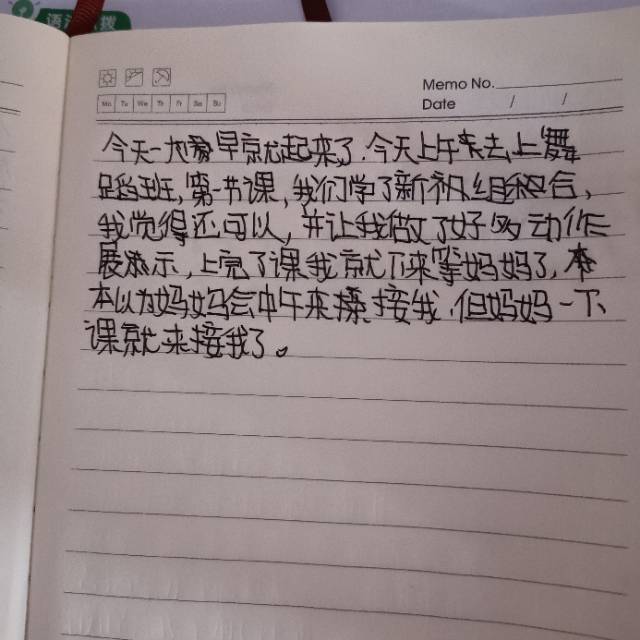 语
拨
Memo No.
Mo Tu We Th Fr Sa Su
Date / /
今天一大早就起来了.今天上午去上舞
蹈班,第一节课,我们学了新的组合,
我觉得还可以,并让我做了好多动作
展示,上完了课我就下来等妈妈了,本
本以为妈妈会中午来接我,但妈妈一下
课就来接我了。